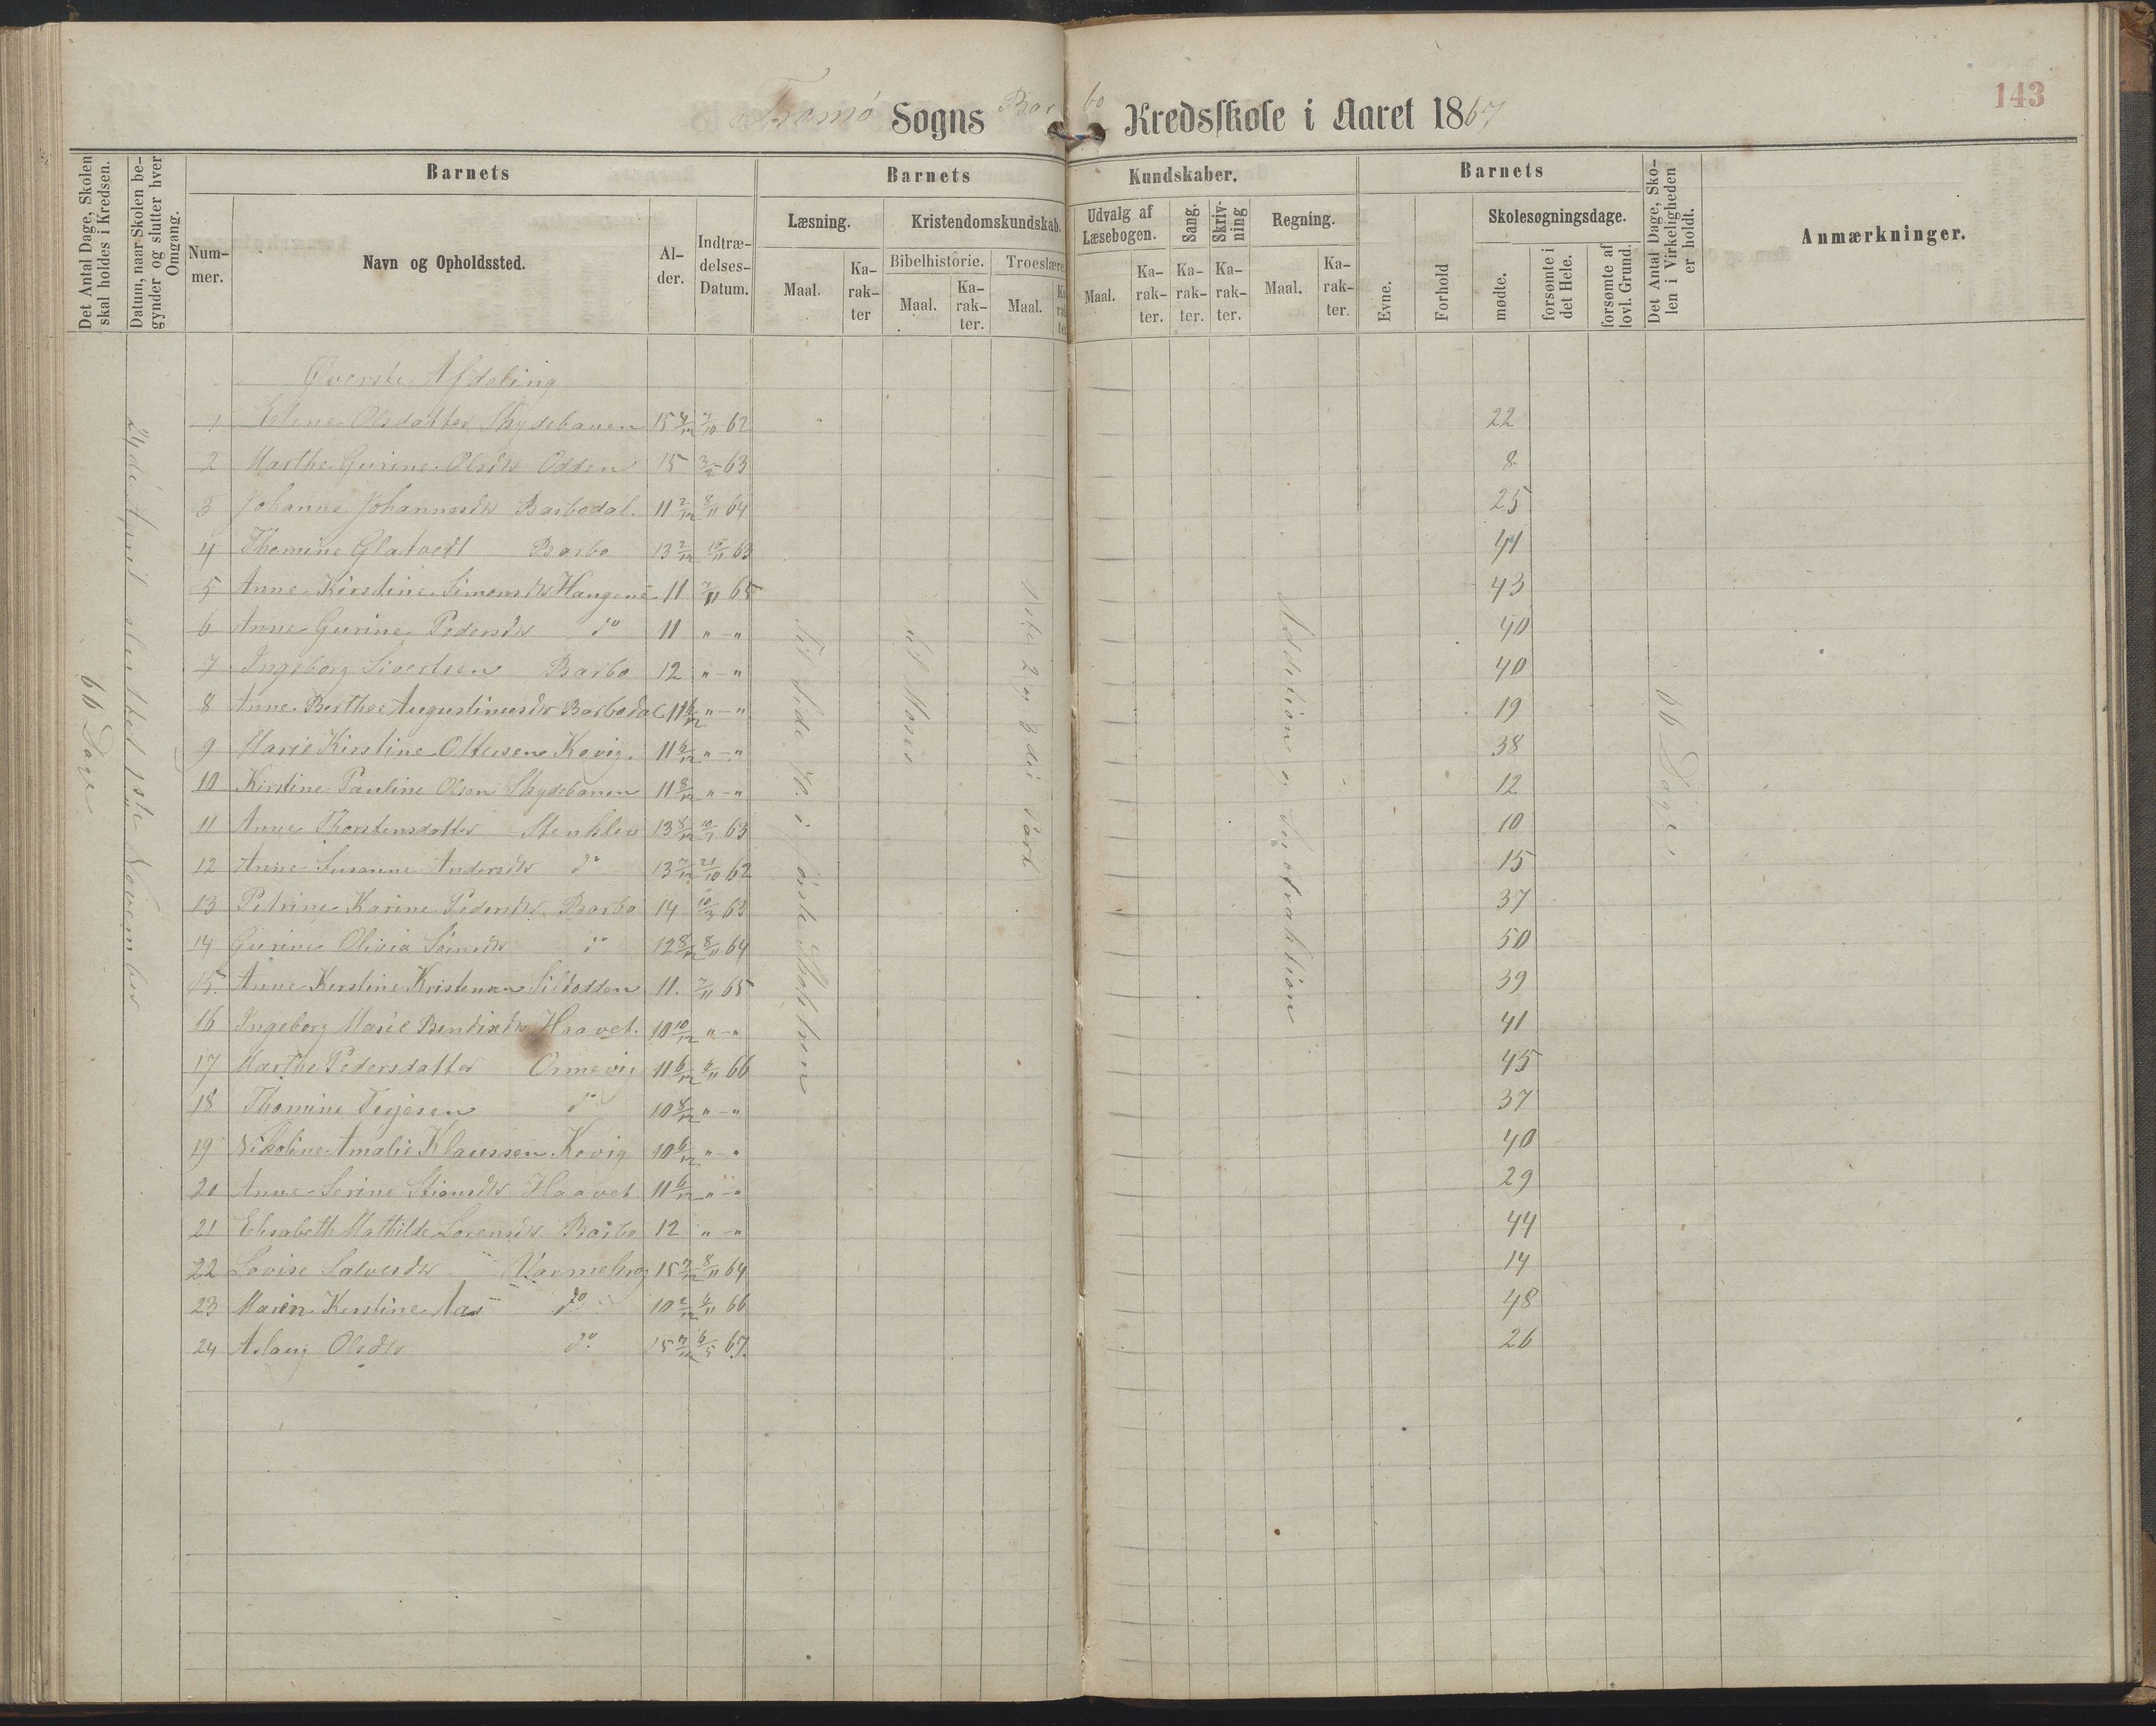 143
Tromø Sogns Barbo Kredsskole i Aaret 1867
Det Antal Dage, Skolen skal holdes i Kredsen.
Datum, naar Skolen begynder og slutter hver Omgang.
Barnets
Barnets Kundskaber.
Barnets
Det Antal Dage, Skolen i Virkeligheden er holdt.
Anmærkninger.
Nummer.
Navn og Opholdssted.
Alder.
Indtrædelses-Datum.
Læsning.
Kristendomskundskab.
Udvalg af Læsebogen.
Sang.
Skrivning
Regning.
Evne.
Forhold
Skolesøgningsdage.
Bibelhistorie. Troeslære.
Maal. Karakter Maal. Karakter. Maal. Karakter. Maal. Karakter. Karakter. Karakter. Maal. Karakter.
mødte. forsømte i det Hele. forsømte af lovl. Grund.
Øverste Afdeling
1 Olsdatter Skydebanen 15 4/12 7/10 62 22
2 Marthe Gurine Olsdtr Odden 15 63 8
3 Johanne Johannesdtr Barbodal. 11 2/12 8/11 64 25
4 Thomine Glatvedt Barbo 13 2/12 15/11 63 41
5 Anne Kirstine Simonsdtr Haugene 11 7/11 65 43
6 Anne Gurine Pedersdtr do 11 " - " 40
7 Ingeborg Sivertsen Barbo 12 " - " 40
8 Anne Berthee Augustinusdtr Barbodal 11 6/12 " - " 19
9 Marie Kirstine Ottersen Kovig. 11 6/12 " - " 38
10 Kirstine Pauline Olsen Skydebanen 11 8/12 " - " 12
11 Anne Thorstensdatter Stenklev 13 8/12 63 10
12 Anne Susanne Andersdtr do 13 7/12 21/10 62 15
13 Petrine Karine Pedersdtr Barbo 14 10/3 63 37
14 Gurine Olivia Sørensdtr do 12 8/12 8/11 64 50
15. Anne Kirstine Kristensen Sildodden 11. 7/11 65 39
16 Ingeborg Marie Bendixdtr Haavet. 10 10/12 " - " 41
17 Marthe Pedersdatter Ormevig 11 6/12 6/11 66 45
18 Thomine Terjesen do 10 8/12 " - " 37
19 Nikoline Amalie Klaussen Kovig 10 6/12 " - " 40
20 Anne Serine Stiansdtr Haavet 11 6/12 " - " 29
21 Elisabeth Mathilde Lorensdtr Barbo 12 " - " 44
22 Lovise Salvesdtr 15 7/12 8/11 64 14
23 Maren Kirstine Aas do 10 2/12 6/11 66 48
24 Aslaug Olsdtr do. 15 7/12 6/5 67. 26
66 Dage
April sluttet 1ste November
Til Side i første Skoletrin
til Moses
2 og 3die Part
Addition og Subtraktion
66 Dage